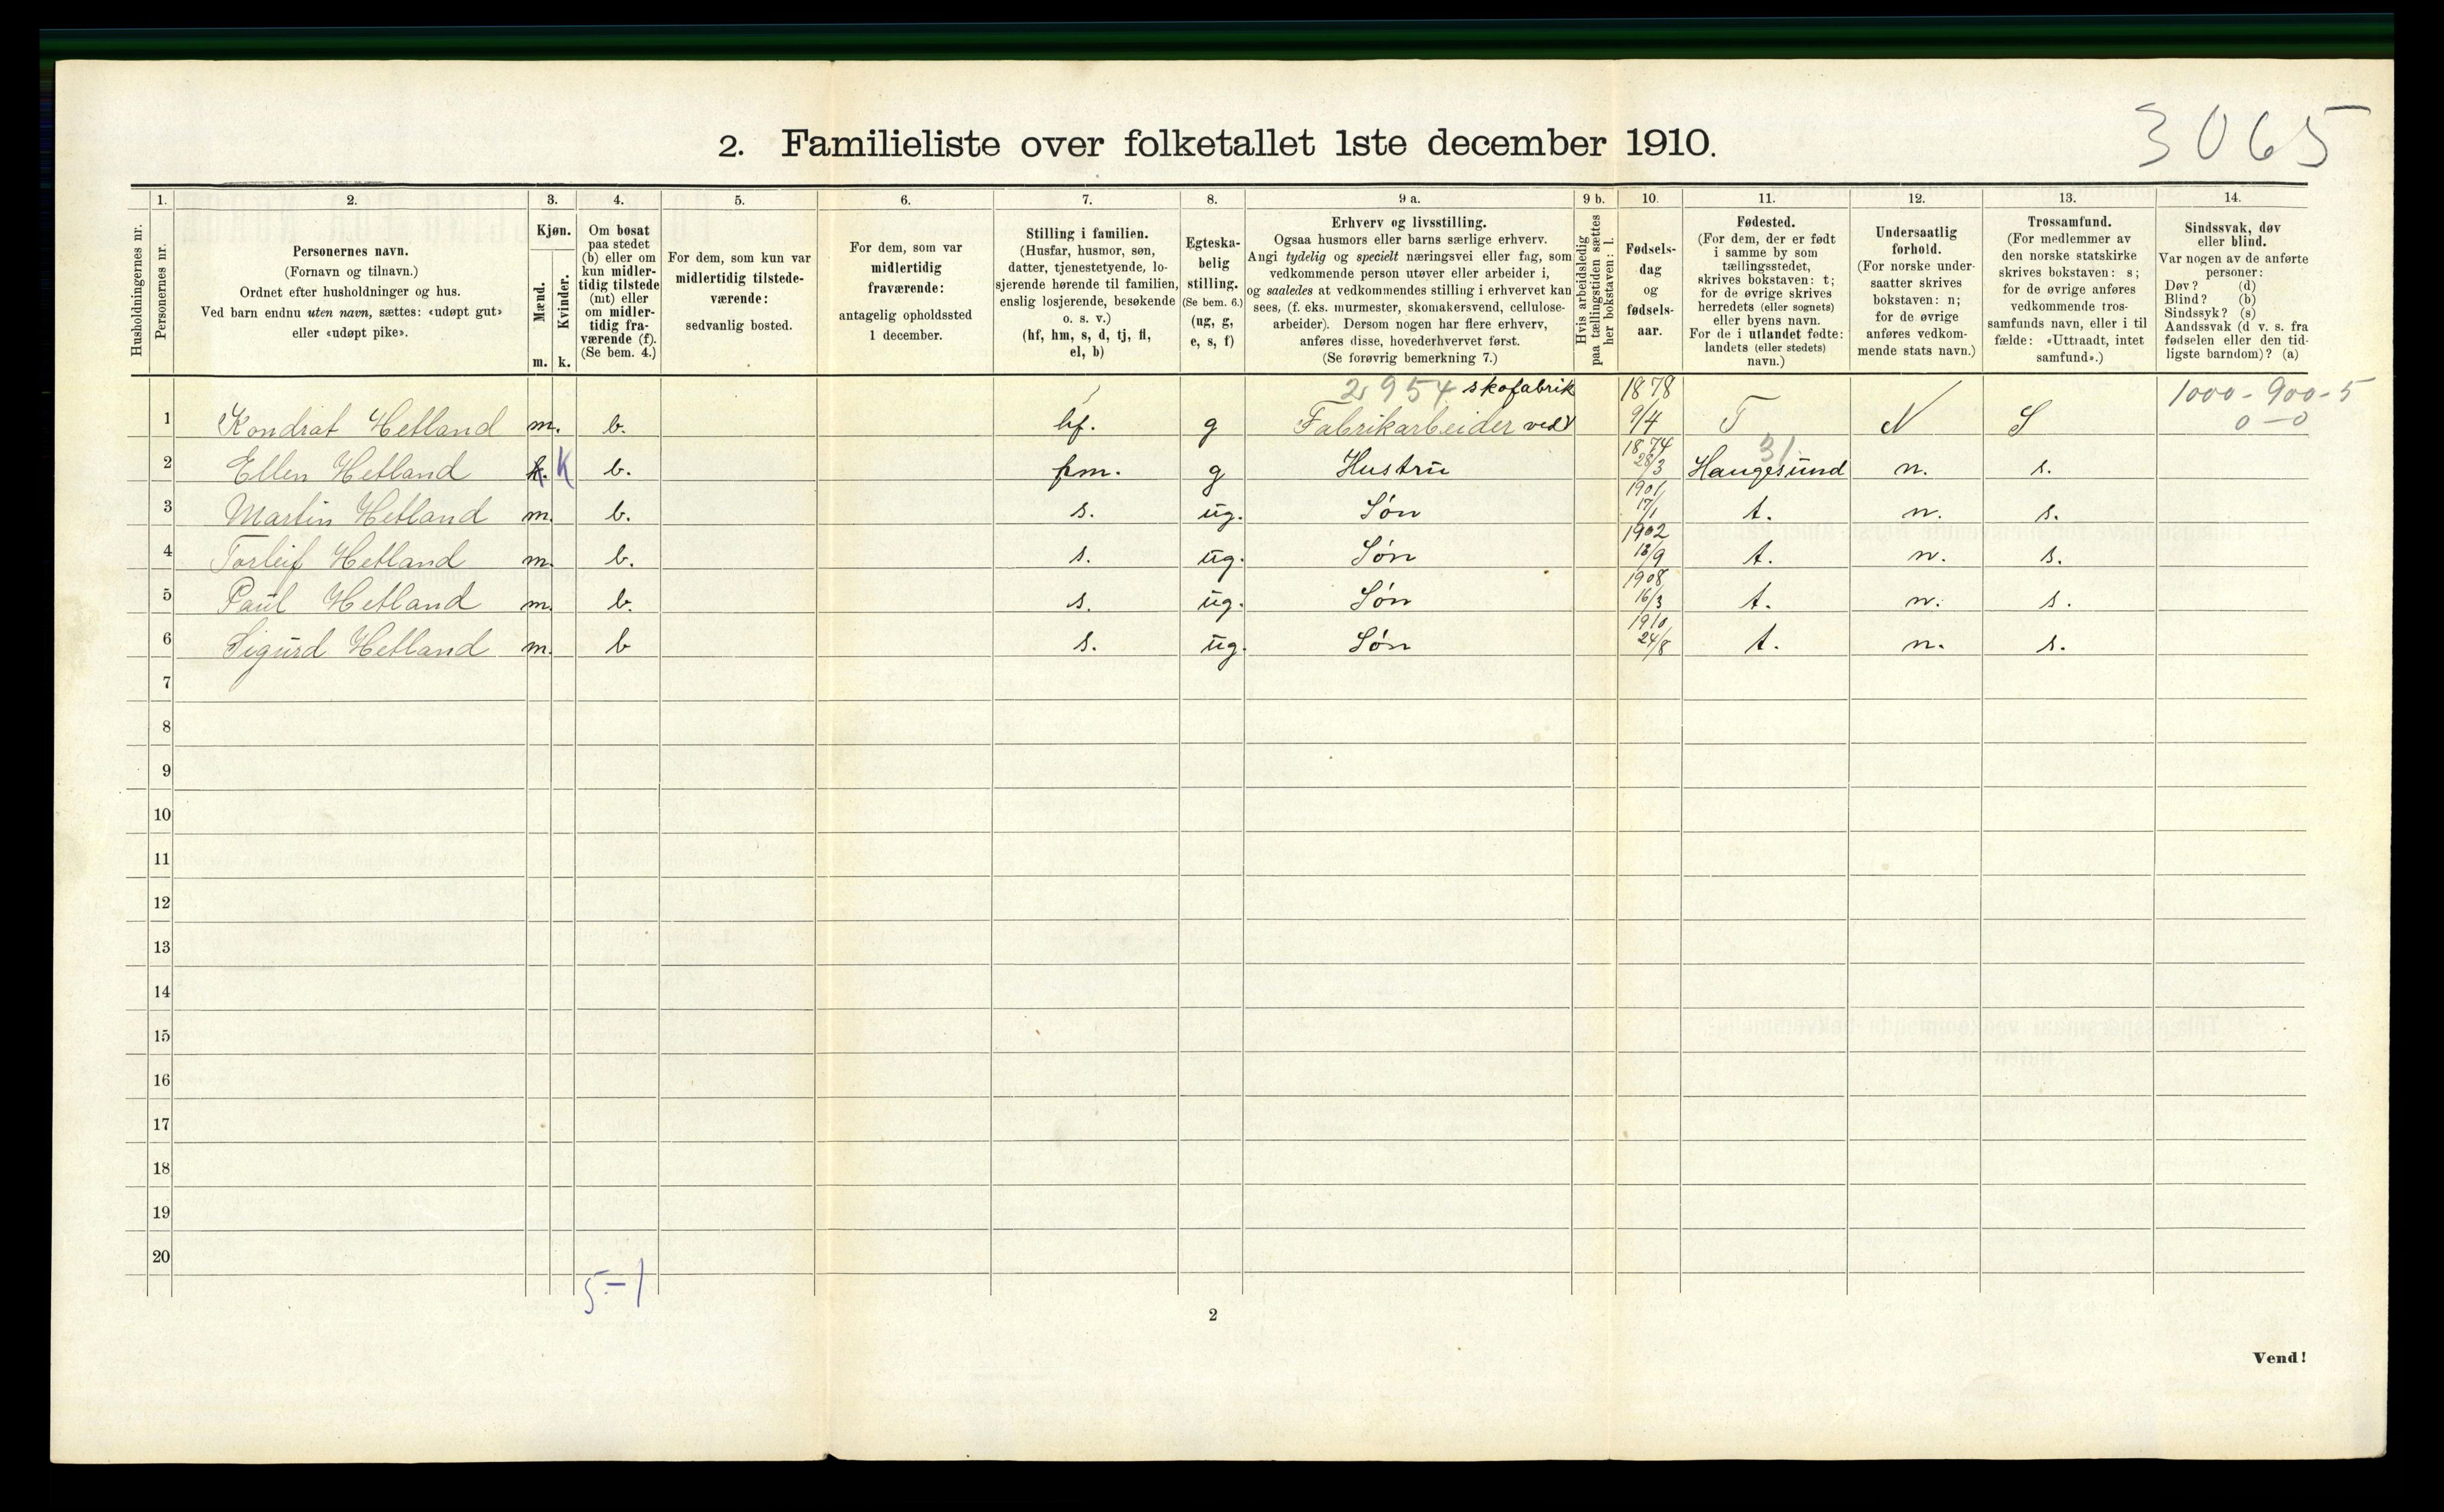 3065
2. Familieliste over folketallet 1ste december 1910.
1. 2. 3. 4. 5. 6. 7. 8. 9 a. 9 b. 10. 11. 12. 13. 14.
Husholdningernes nr.
Personernes nr.
Personernes navn.
(Fornavn og tilnavn.)
Ordnet efter husholdninger og hus.
Ved barn endnu uten navn, sættes: «udøpt gut»
eller «udøpt pike».
Kjøn.
Mænd.
Kvinder.
m. k.
Om bosat
paa stedet
(b) eller om
kun midler-
tidig tilstede
(mt) eller
om midler-
tidig fra-
værende (f).
(Se bem. 4.)
For dem, som kun var
midlertidig tilstede-
værende:
sedvanlig bosted.
For dem, som var
midlertidig
fraværende:
antagelig opholdssted
1 december.
Stilling i familien.
(Husfar, husmor, søn,
datter, tjenestetyende, lo-
sjerende hørende til familien,
enslig losjerende, besøkende
o. s. v.)
(hf, hm, s, d, tj, fl,
el, b)
Egteska-
belig
stilling.
(Se bem. 6.)
(ug, g,
e, s, f)
Erhverv og livsstilling.
Ogsaa husmors eller barns særlige erhverv.
Angi tydelig og specielt næringsvei eller fag, som
vedkommende person utøver eller arbeider i,
og saaledes at vedkommendes stilling i erhvervet kan
sees, (f. eks. murmester, skomakersvend, cellulose-
arbeider). Dersom nogen har flere erhverv,
anføres disse, hovederhvervet først.
(Se forøvrig bemerkning 7.)
Hvis arbeidsledig
paa tællingstiden sættes
her bokstaven: l.
Fødsels-
dag
og
fødsels-
aar.
Fødested.
(For dem, der er født
i samme by som
tællingsstedet,
skrives bokstaven: t;
for de øvrige skrives
herredets (eller sognets)
eller byens navn.
For de i utlandet fødte:
landets (eller stedets)
navn.)
Undersaatlig
forhold.
(For norske under-
saatter skrives
bokstaven: n;
for de øvrige
anføres vedkom-
mende stats navn.)
Trossamfund.
(For medlemmer av
den norske statskirke
skrives bokstaven: s;
for de øvrige anføres
vedkommende tros-
samfunds navn, eller i til
fælde: «Uttraadt, intet
samfund».)
Sindssvak, døv
eller blind.
Var nogen av de anførte
personer:
Døv? (d)
Blind? (b)
Sindssyk? (s)
Aandssvak (d. v. s. fra
fødselen eller den tid-
ligste barndom)? (a)
2954 skofabrik 1878 1000 - 900 - 5
1 Kondrat Hetland m. b. hf. g Fabrikarbeider ved 9/4 T N S 0 - 0
1874 31
2 Ellen Hetland k. K b. hm. g Hustru 28/3 Haugesund n. s.
1901
3 Martin Hetland m. b. s. ug. Søn 17/1 t. n. s.
1902
4 Torleif Hetland m. b. s. ug. Søn 18/9 t. n. s.
1908
5 Paul Hetland m. b. s. ug. Søn 16/3 t. n. s.
1910
6 Sigurd Hetland m. b s. ug. Søn 24/8 t. n. s.
7
8
9
10
11
12
13
14
15
16
17
18
19
20
5 - 1
2
Vend!